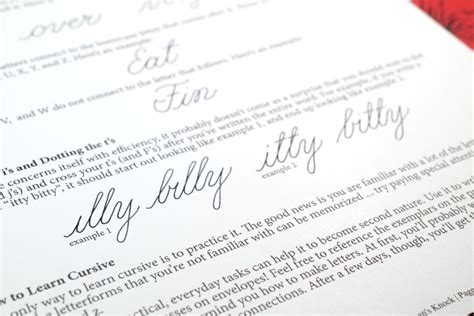 over
letters connect to the lowercase letter that
U, X, Y, and Z. Here's an example:
Eat
V, and W do not connect to the letter that follows. Here's an example:
Fin
T's and Dotting the I's
concerns itself with efficiency, it probably doesn't come as a surprise that you should wait to the
j's) and cross your t's (and F's) after you've written the entire word. For example, if you write
"itty bitty", it should start out looking like example 1, and end up looking like example 2.
illy billy itty bitty
example 1 example 2
How to Learn Cursive
only way to learn cursive is to practice it. The good news is you are familiar with a lot of the letters
the letterforms that you're not familiar with can be memorized ... try paying special attention
practical, everyday tasks can help it to become second nature. Use it to
addresses on envelopes! Feel free to reference the exemplars on the
remind you how to make letters. At first, you'll probably
connections. After a few days, though, you'll get
's Knock | Page